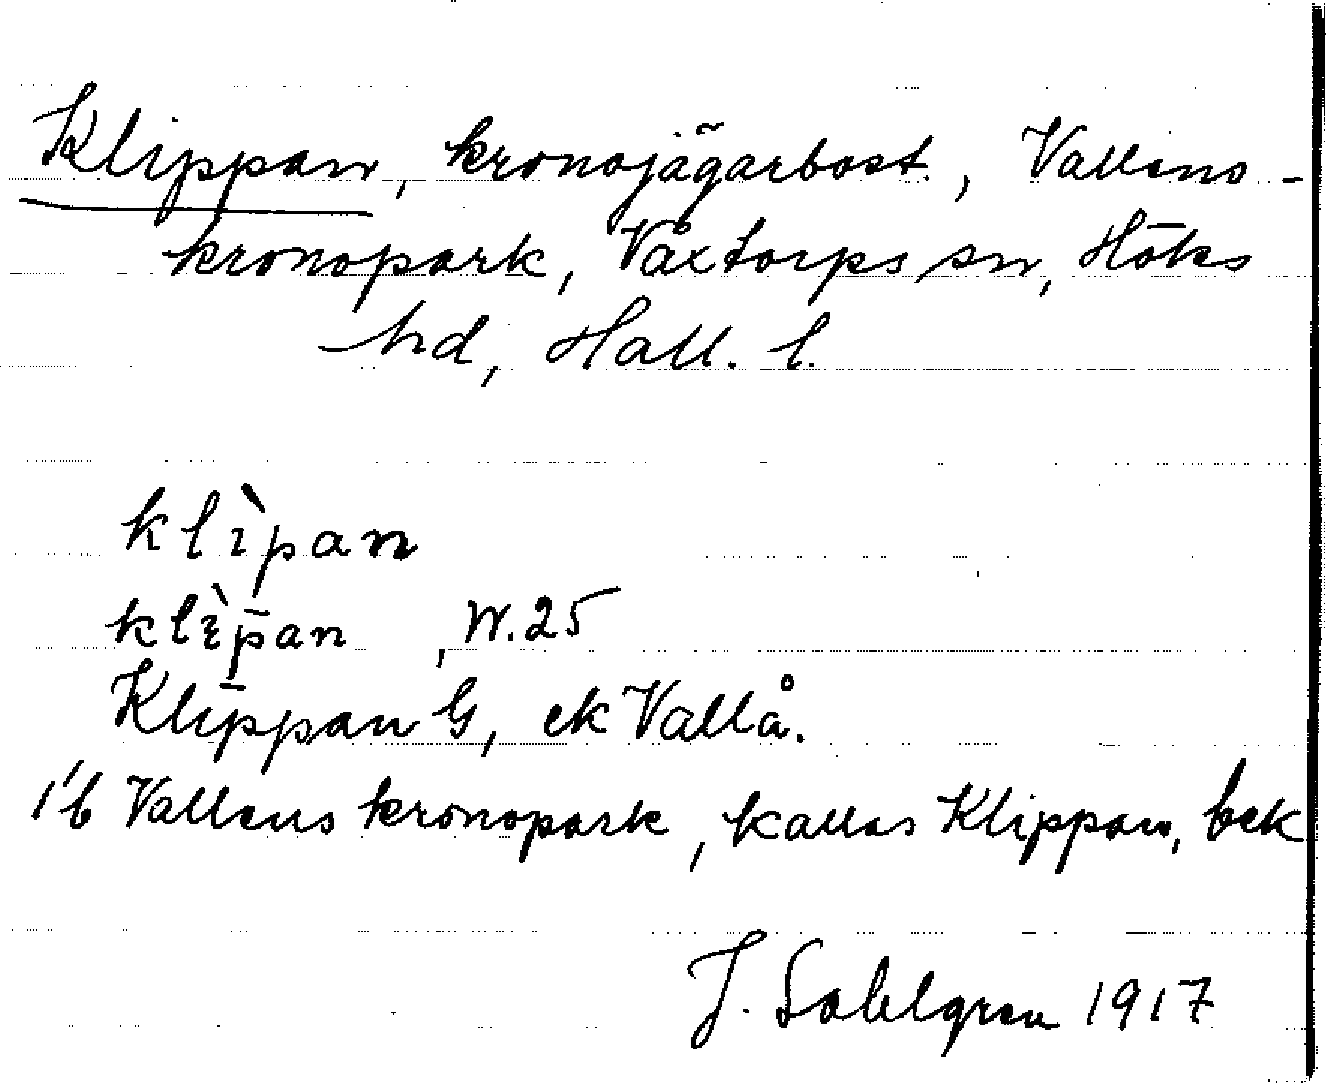 Klippan, kronojägarbost., Vallens-
kronopark, Våxtorps sn, Höks
hd, Hall. l.
klìpan
klìp̄an , W. 25
Klippan G, ek Vallå.
1/6 Vallens kronopark, kallas Klippan, bek
J. Sahlgren 1917